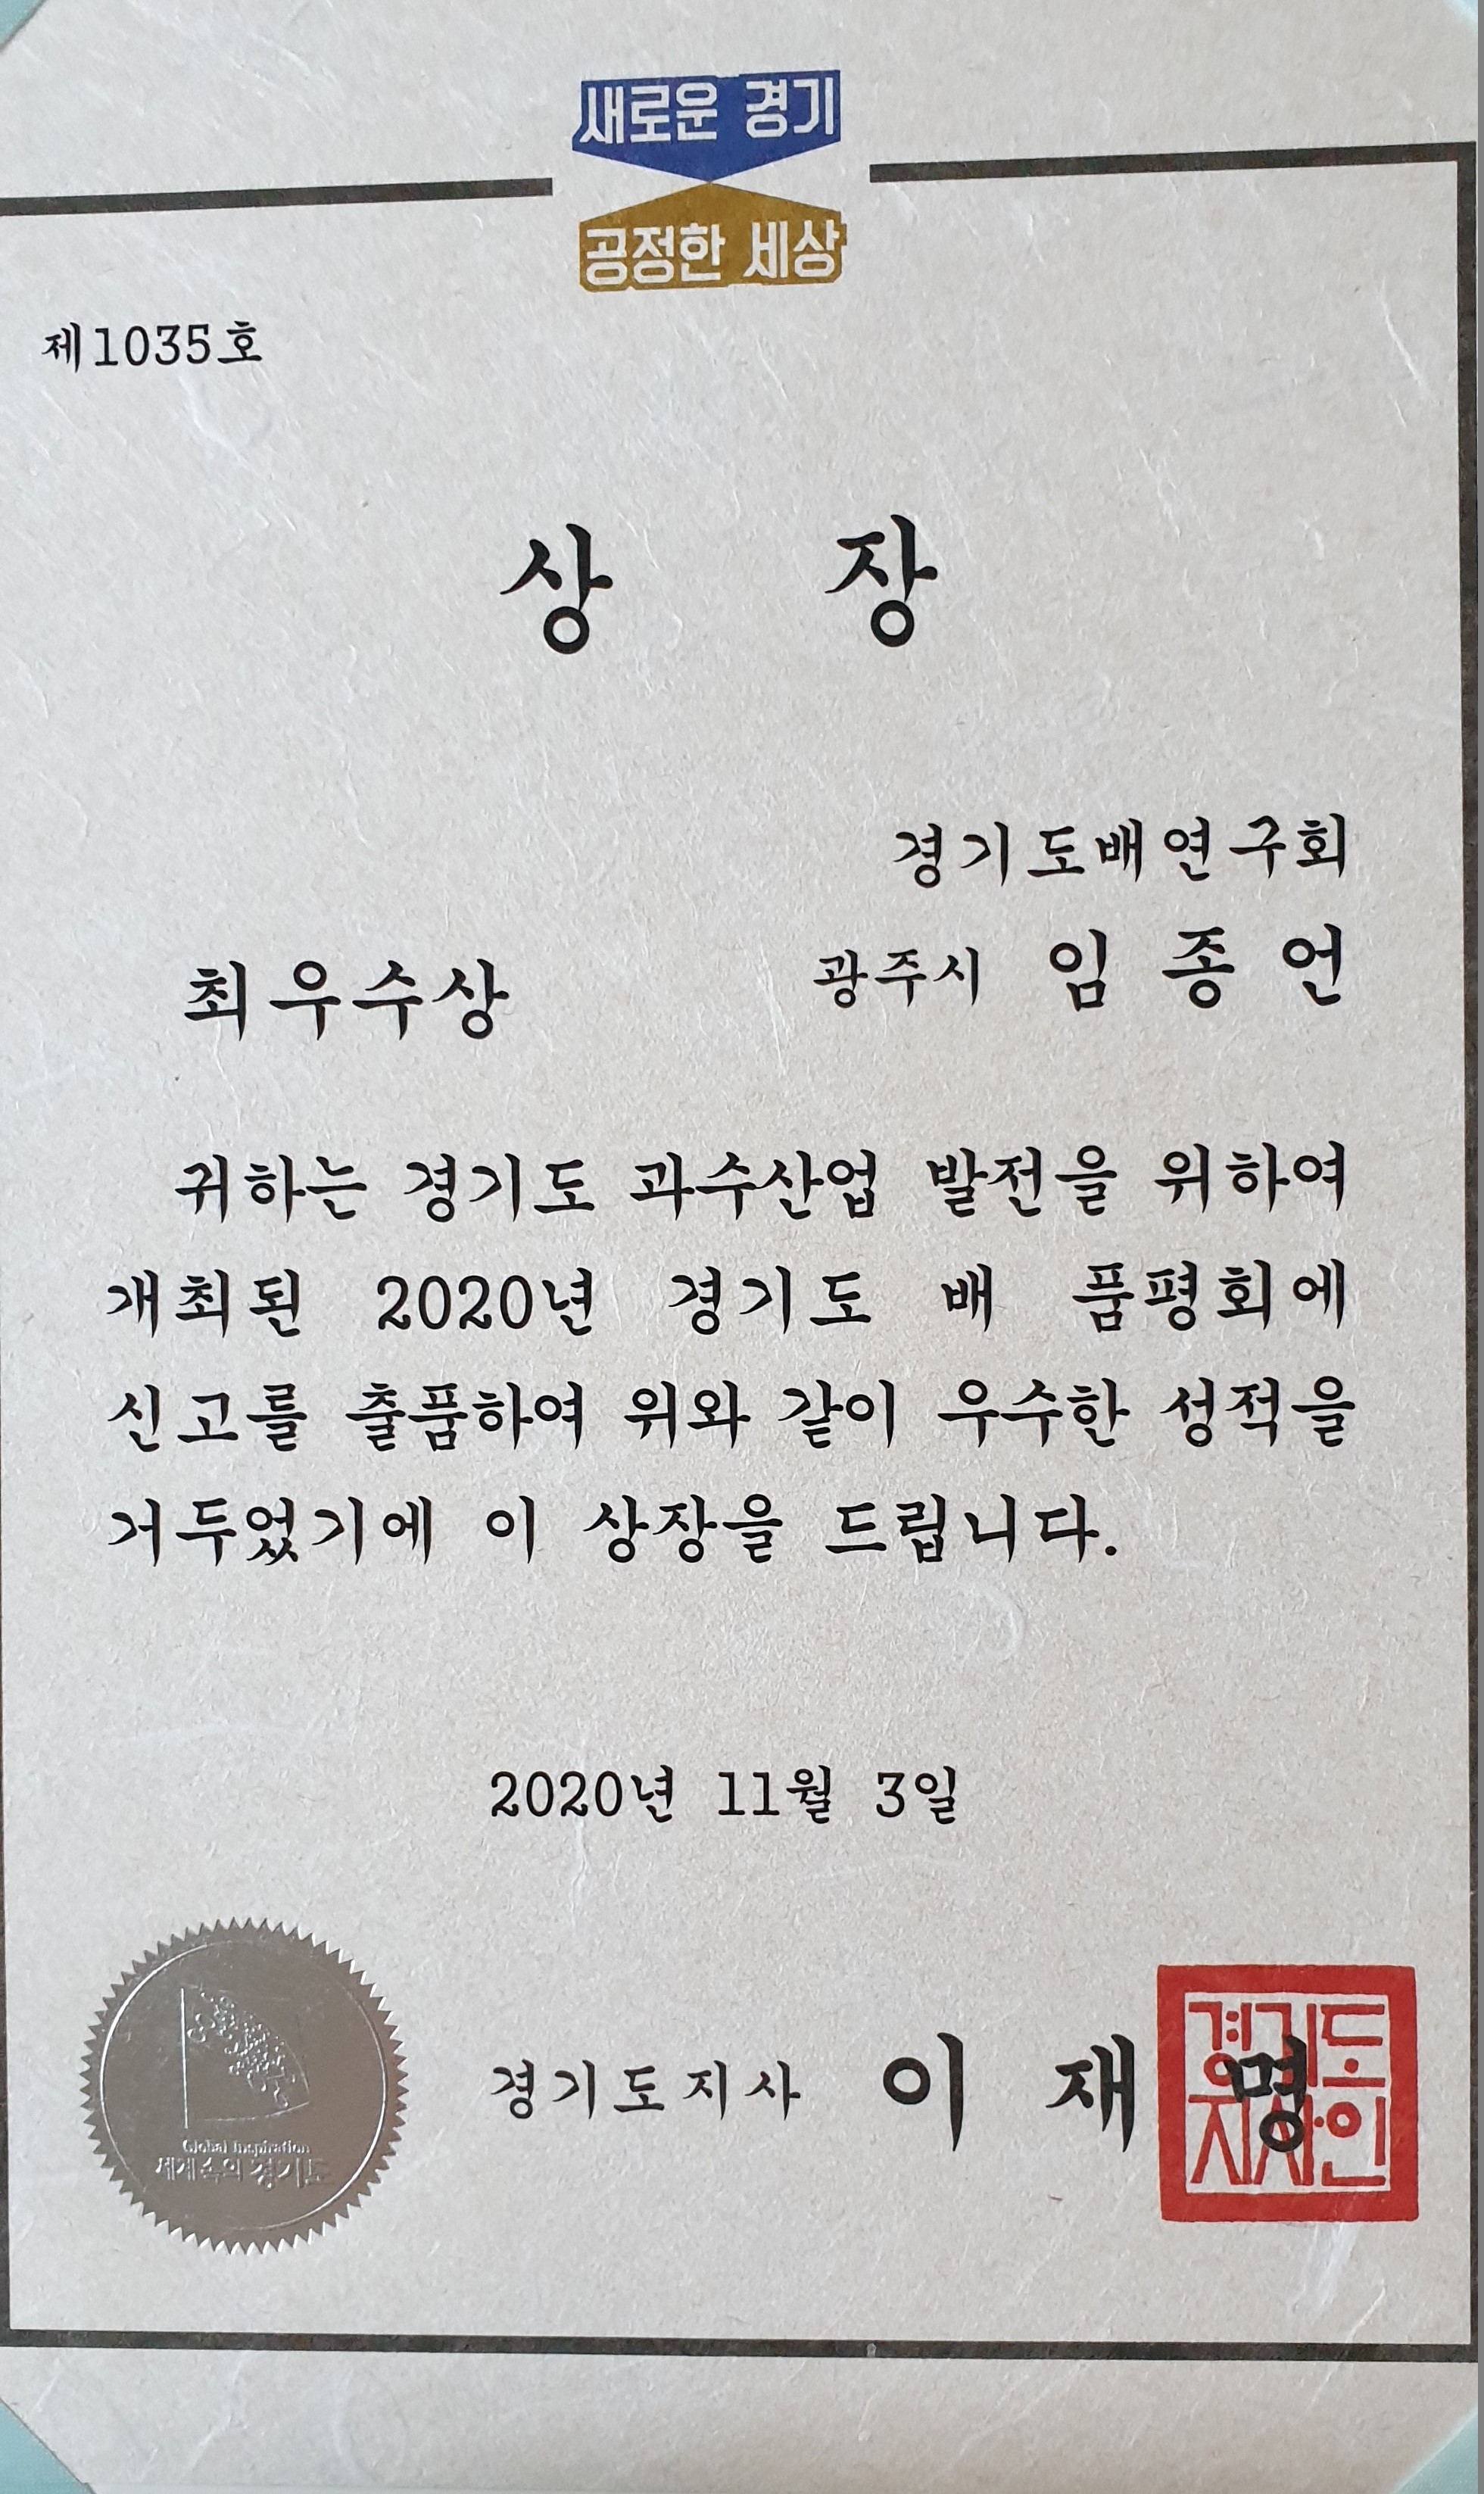 새로운 경기
공정한 세상
제1035호
상 장
경기도배연구회
최우수상 광주시 임 종 언
귀하는 경기도 과수산업 발전을 위하여
개최된 2020년 경기도 배 품평회에
신고를 출품하여 위와 같이 우수한 성적을
거두었기에 이 상장을 드립니다.
2020년 11월 3일
경기도지사 이 재 명
경기도
지사인
Global Inspiration
세계속의 경기도